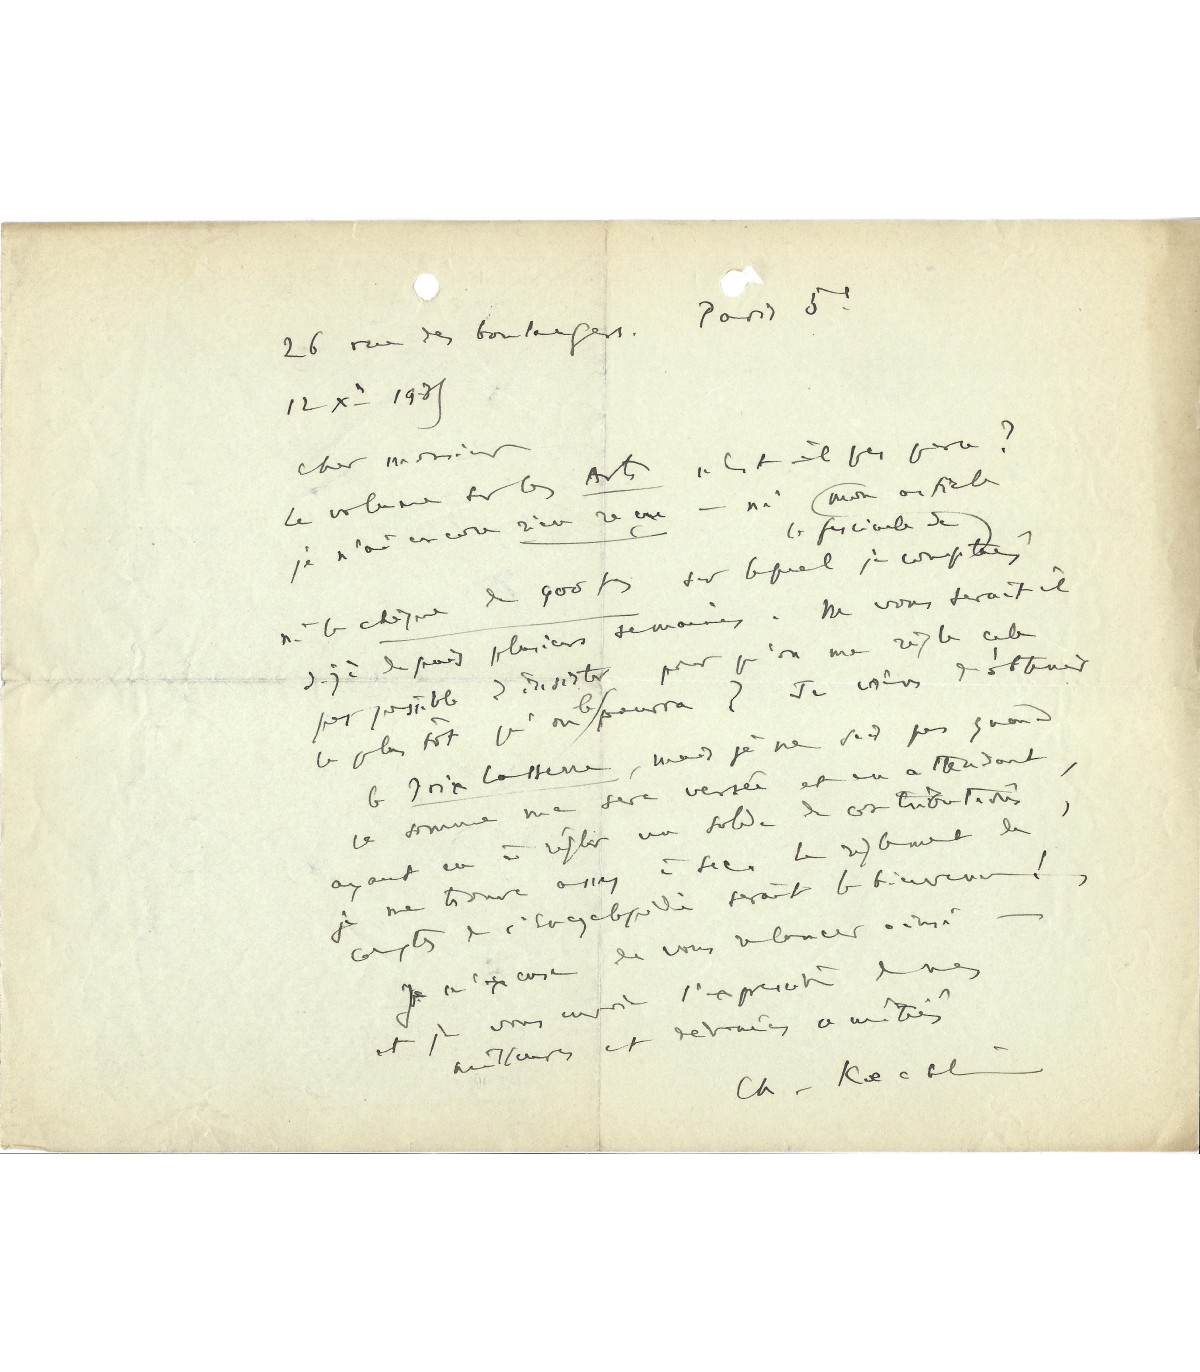 26 rue des boulangers. Paris 5e
12 Xe 1935
cher monsieur
Le volume sur les Arts n'est-il pas paru ?
je n'ai encore rien reçu — ni mon article
le fascicule de
ni le chèque de 900 frs sur lequel je comptais
déjà depuis plusieurs semaines. Ne vous serait-il
pas possible d'insister pour qu'on me règle cela
le plus tôt qu'on le pourra ? Je viens d'obtenir
le Prix Lasserre, mais je ne sais pas quand
la somme me sera versée et en attendant,
ayant eu à régler un solde de contributions,
je me trouve assez à sec. Le règlement de
comptes de l'Encyclopédie serait le bienvenu !
Je m'excuse de vous relancer ainsi —
et je vous envoie l'expression de mes
meilleures et dévouées amitiés
Ch. Kœchlin